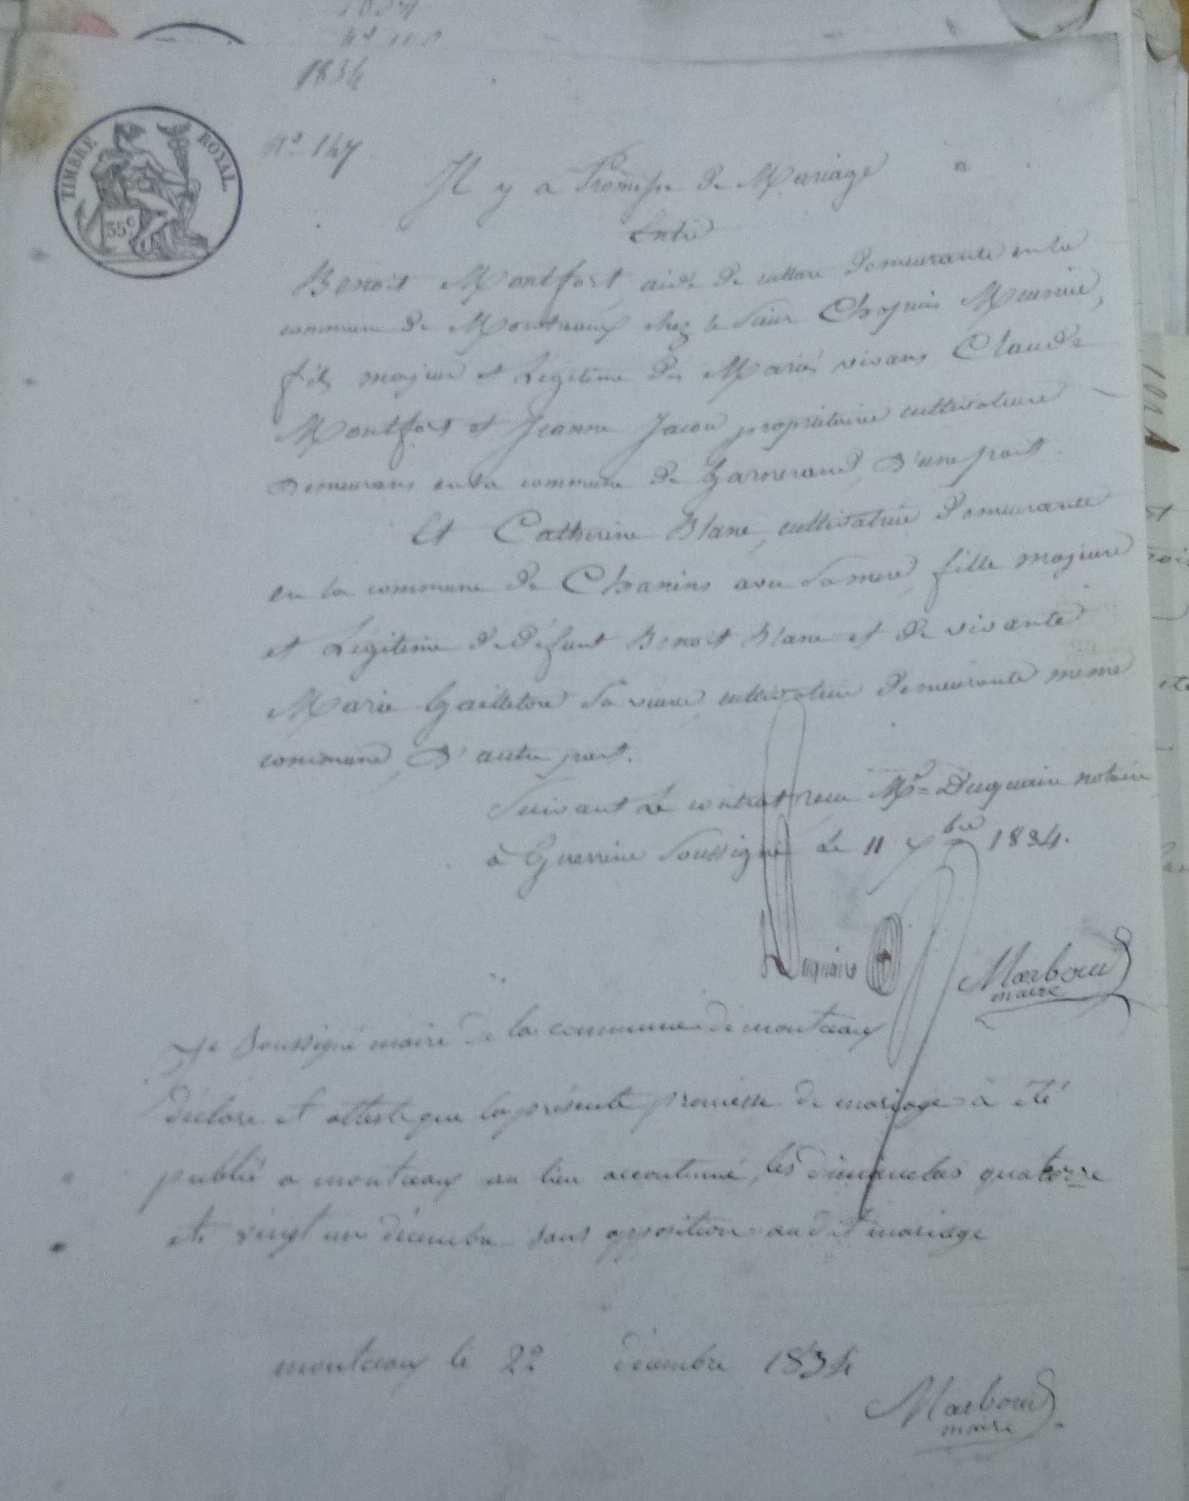 1834
N° 147
TIMBRE ROYAL
35 c
Il y a Promesse de Mariage
Entre
Benoit Montfort, aide de culture demeurante en la
commune de Montceaux chez le Sieur Chapuis Meunié,
fils majeur et Légitime des Mariés vivans Claude
Montfort et Jeanne propriétaire cultivateurs
demeurans en la commune de Garnerand, d'une part.
Et Catherine Blanc, cultivatrice demeurante
en la commune de Chanins avec Sa mere, fille majeure
et Légitime de défunt Benoit Blanc et de vivante
Marie Sa veuve cultivatrice demeurante meme
commune, d'autre part.
Suivant Le contrat recu Me Duquaire notaire
à Guerreins Soussigné Le 11 Xbre 1834.
Duquaire
Marboud
maire
Je Soussigné maire de la commune de montceaux
déclare et atteste que la présente promesse de mariage à été
publié a montceaux au lieu accoutumé, les dimanches quatorze
et vingt un décembre sans opposition au dit mariage
montceaux le 22 décembre 1834
Marboud
maire